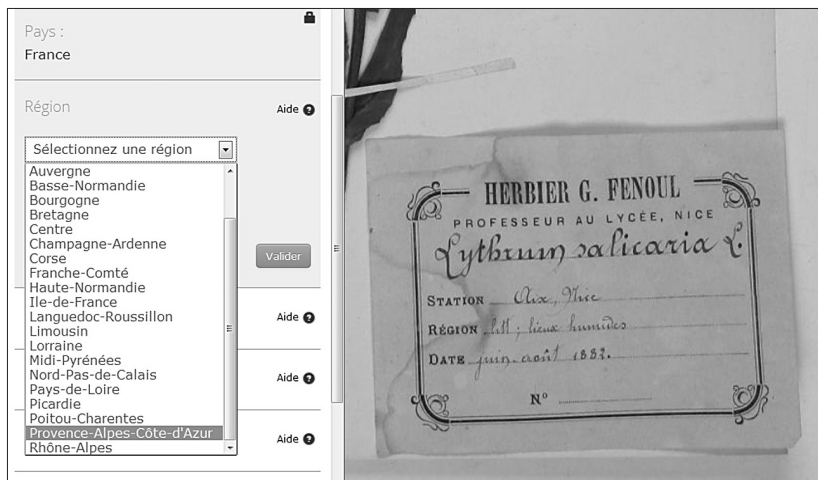 Pays :
France
Région
Aide
Sélectionnez une région
Auvergne
Basse-Normandie
Bourgogne
Bretagne
Centre
Champagne-Ardenne
Corse
Franche-Comté
Haute-Normandie
Ile-de-France
Languedoc-Roussillon
Limousin
Lorraine
Midi-Pyrénées
Nord-Pas-de-Calais
Pays-de-Loire
Picardie
Poitou-Charentes
Provence-Alpes-Côte-d'Azur
Rhône-Alpes
Valider
Aide
Aide
Aide
HERBIER G. FENOUL
PROFESSEUR AU LYCÉE, NICE
Lythrum salicaria L.
STATION Aix, Nice
RÉGION litt ; lieux humides
DATE juin-août 1882.
N°